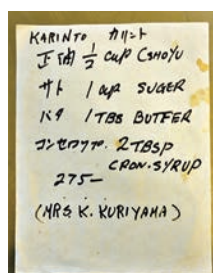 KARINTO カリント
正油 1/2 cup (SHOYU
サト 1 cup SUGER
バタ 1 TBS BUTFER
コンセロップ. 2 TBSP
CRON-SYRUP
275—
(MRS. K. KURIYAMA)